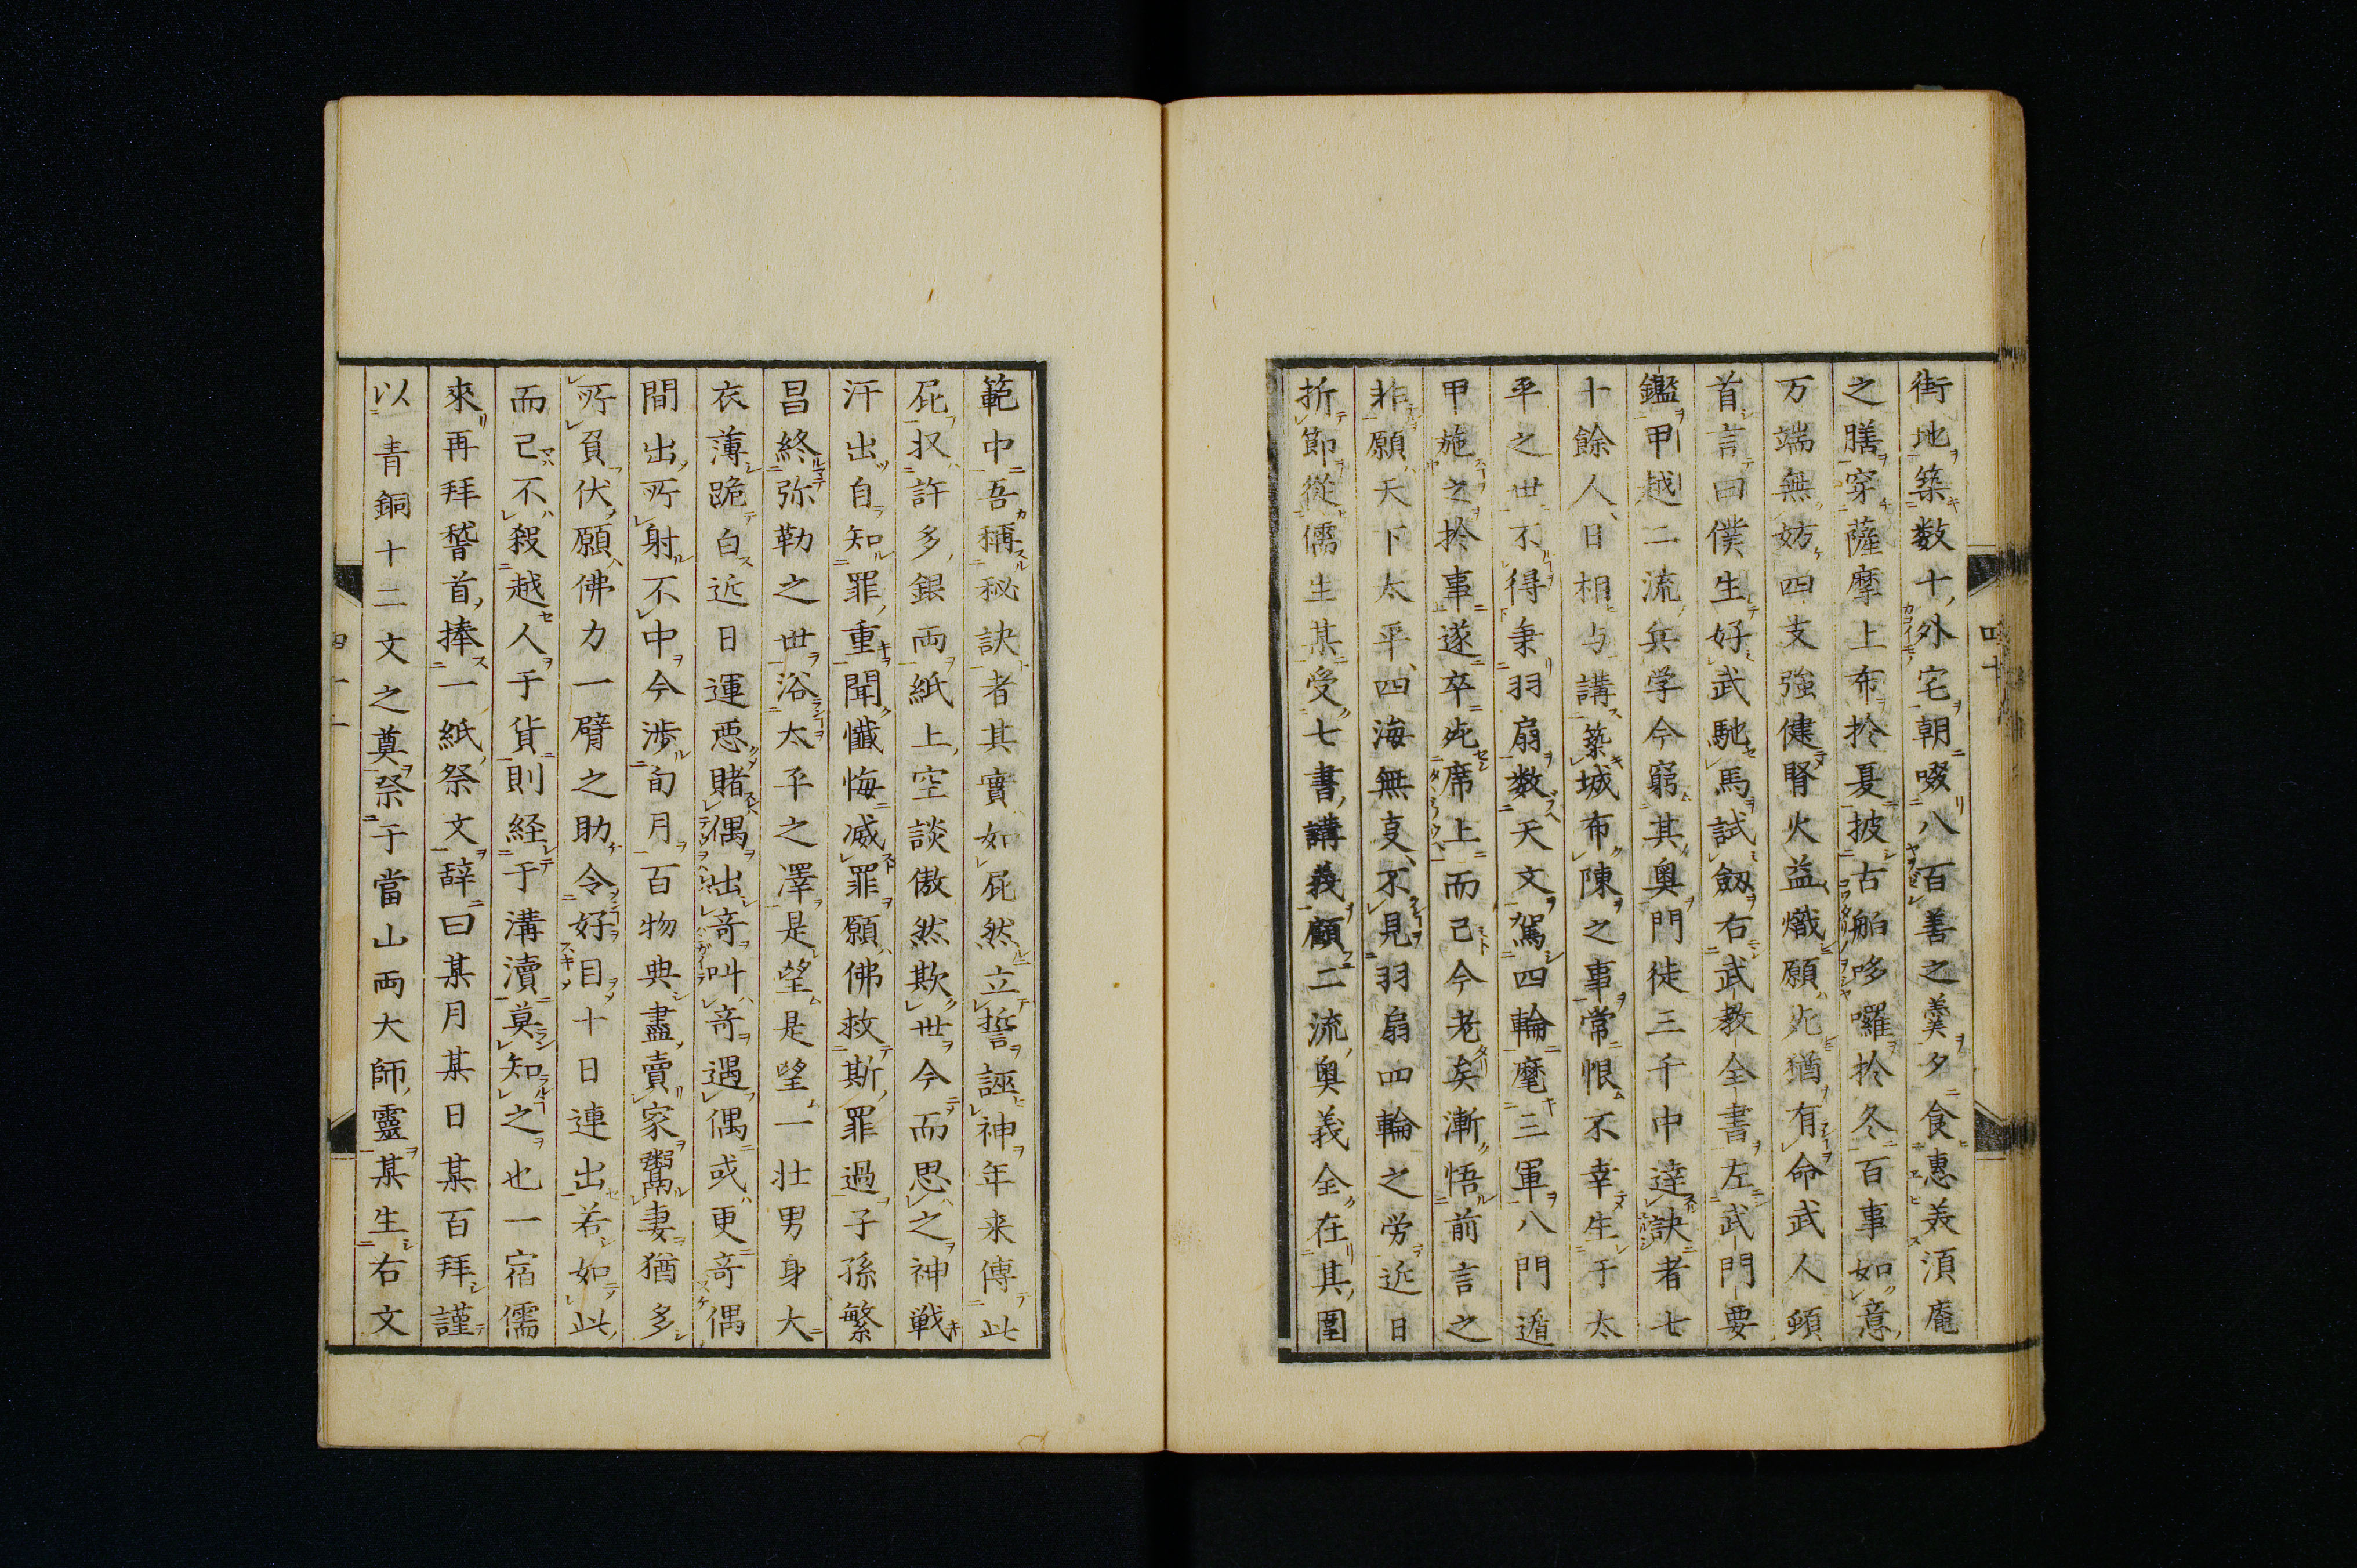 街地築数十外宅朝啜八百善之羹夕食惠美須庵
之膳穿薩摩上布於夏披古舶哆囉於冬百事如意
万端無妨四支強健腎火益熾願死猶有命武人頓
首言曰僕生好武馳馬試劔右武教全書左武門要
鑑甲越二流兵学今窮其奥門徒三千中達訣者七
十餘人日相与講築城布陳之事常恨不幸生于太
平之世不得秉羽扇数天文駕四輪麾三軍八門遁
甲施之於事遂卒死席上而已今老矣漸悟前言之
非願天下太平四海無叓不見羽扇四輪之労近日
折節從儒生某受七書講義顧二流奥義全在其圍
範中吾稱秘訣者其實如屁然立誓誣神年来傳此
屁収許多銀両紙上空談傲然欺世今而思之神戦
汗出自知罪重聞懺悔滅罪願佛救斯罪過子孫繁
昌終弥勒之世浴太平之澤是望是望一壮男身大
衣薄跪白近日運悪賭偶出竒叫竒遇偶或更竒偶
間出所射不中今渉旬月百物典盡賣家鬻妻猶多
所負伏願佛力一臂之助令好目十日連出若如此
而已不殺越人于貨則経于溝瀆莫知之也一宿儒
來再拜稽首捧一紙祭文辞曰某月某日某百拜謹
以青銅十二文之奠祭于當山両大師靈某生右文
四十
四十一